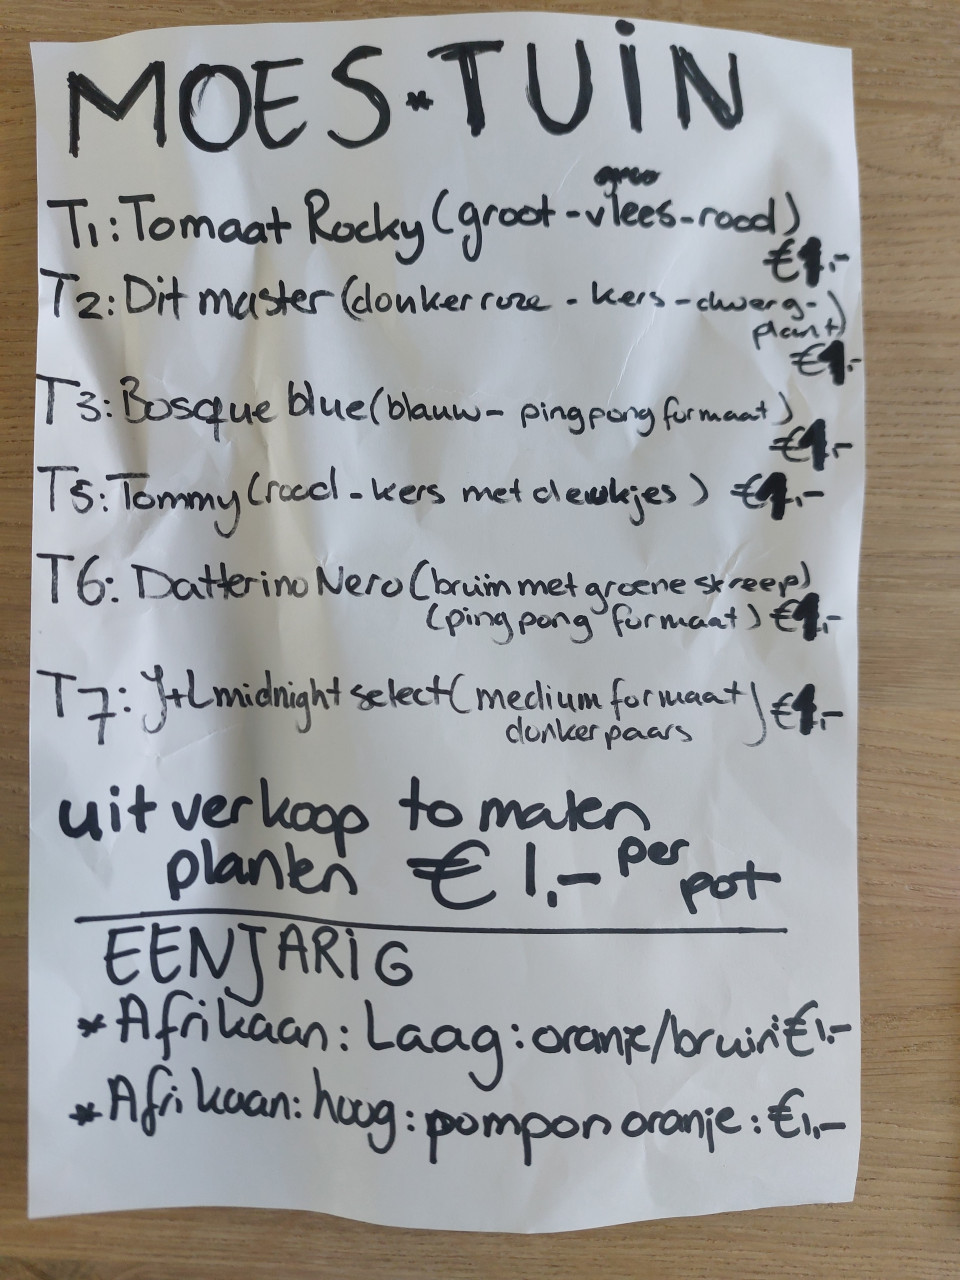 MOES*TUIN
T1: Tomaat Rocky (groot-vlees-rood)
€1,-
T2: Dit master (donkerroze - kers - dwerg-
plant)
€1,-
T3: Bosque blue (blauw- pingpong formaat)
€1,-
T5: Tommy (rood - kers met deukjes) €1,-
T6: Datterino Nero (bruin met groene streep)
(pingpong formaat) €1,-
T7: J+L midnight select (medium formaat) €1,-
donker paars
uitverkoop tomaten
planten €1,- per
pot
EENJARIG
* Afrikaan: Laag: oranje/bruin: €1,-
* Afrikaan: hoog: pompon oranje: €1,-